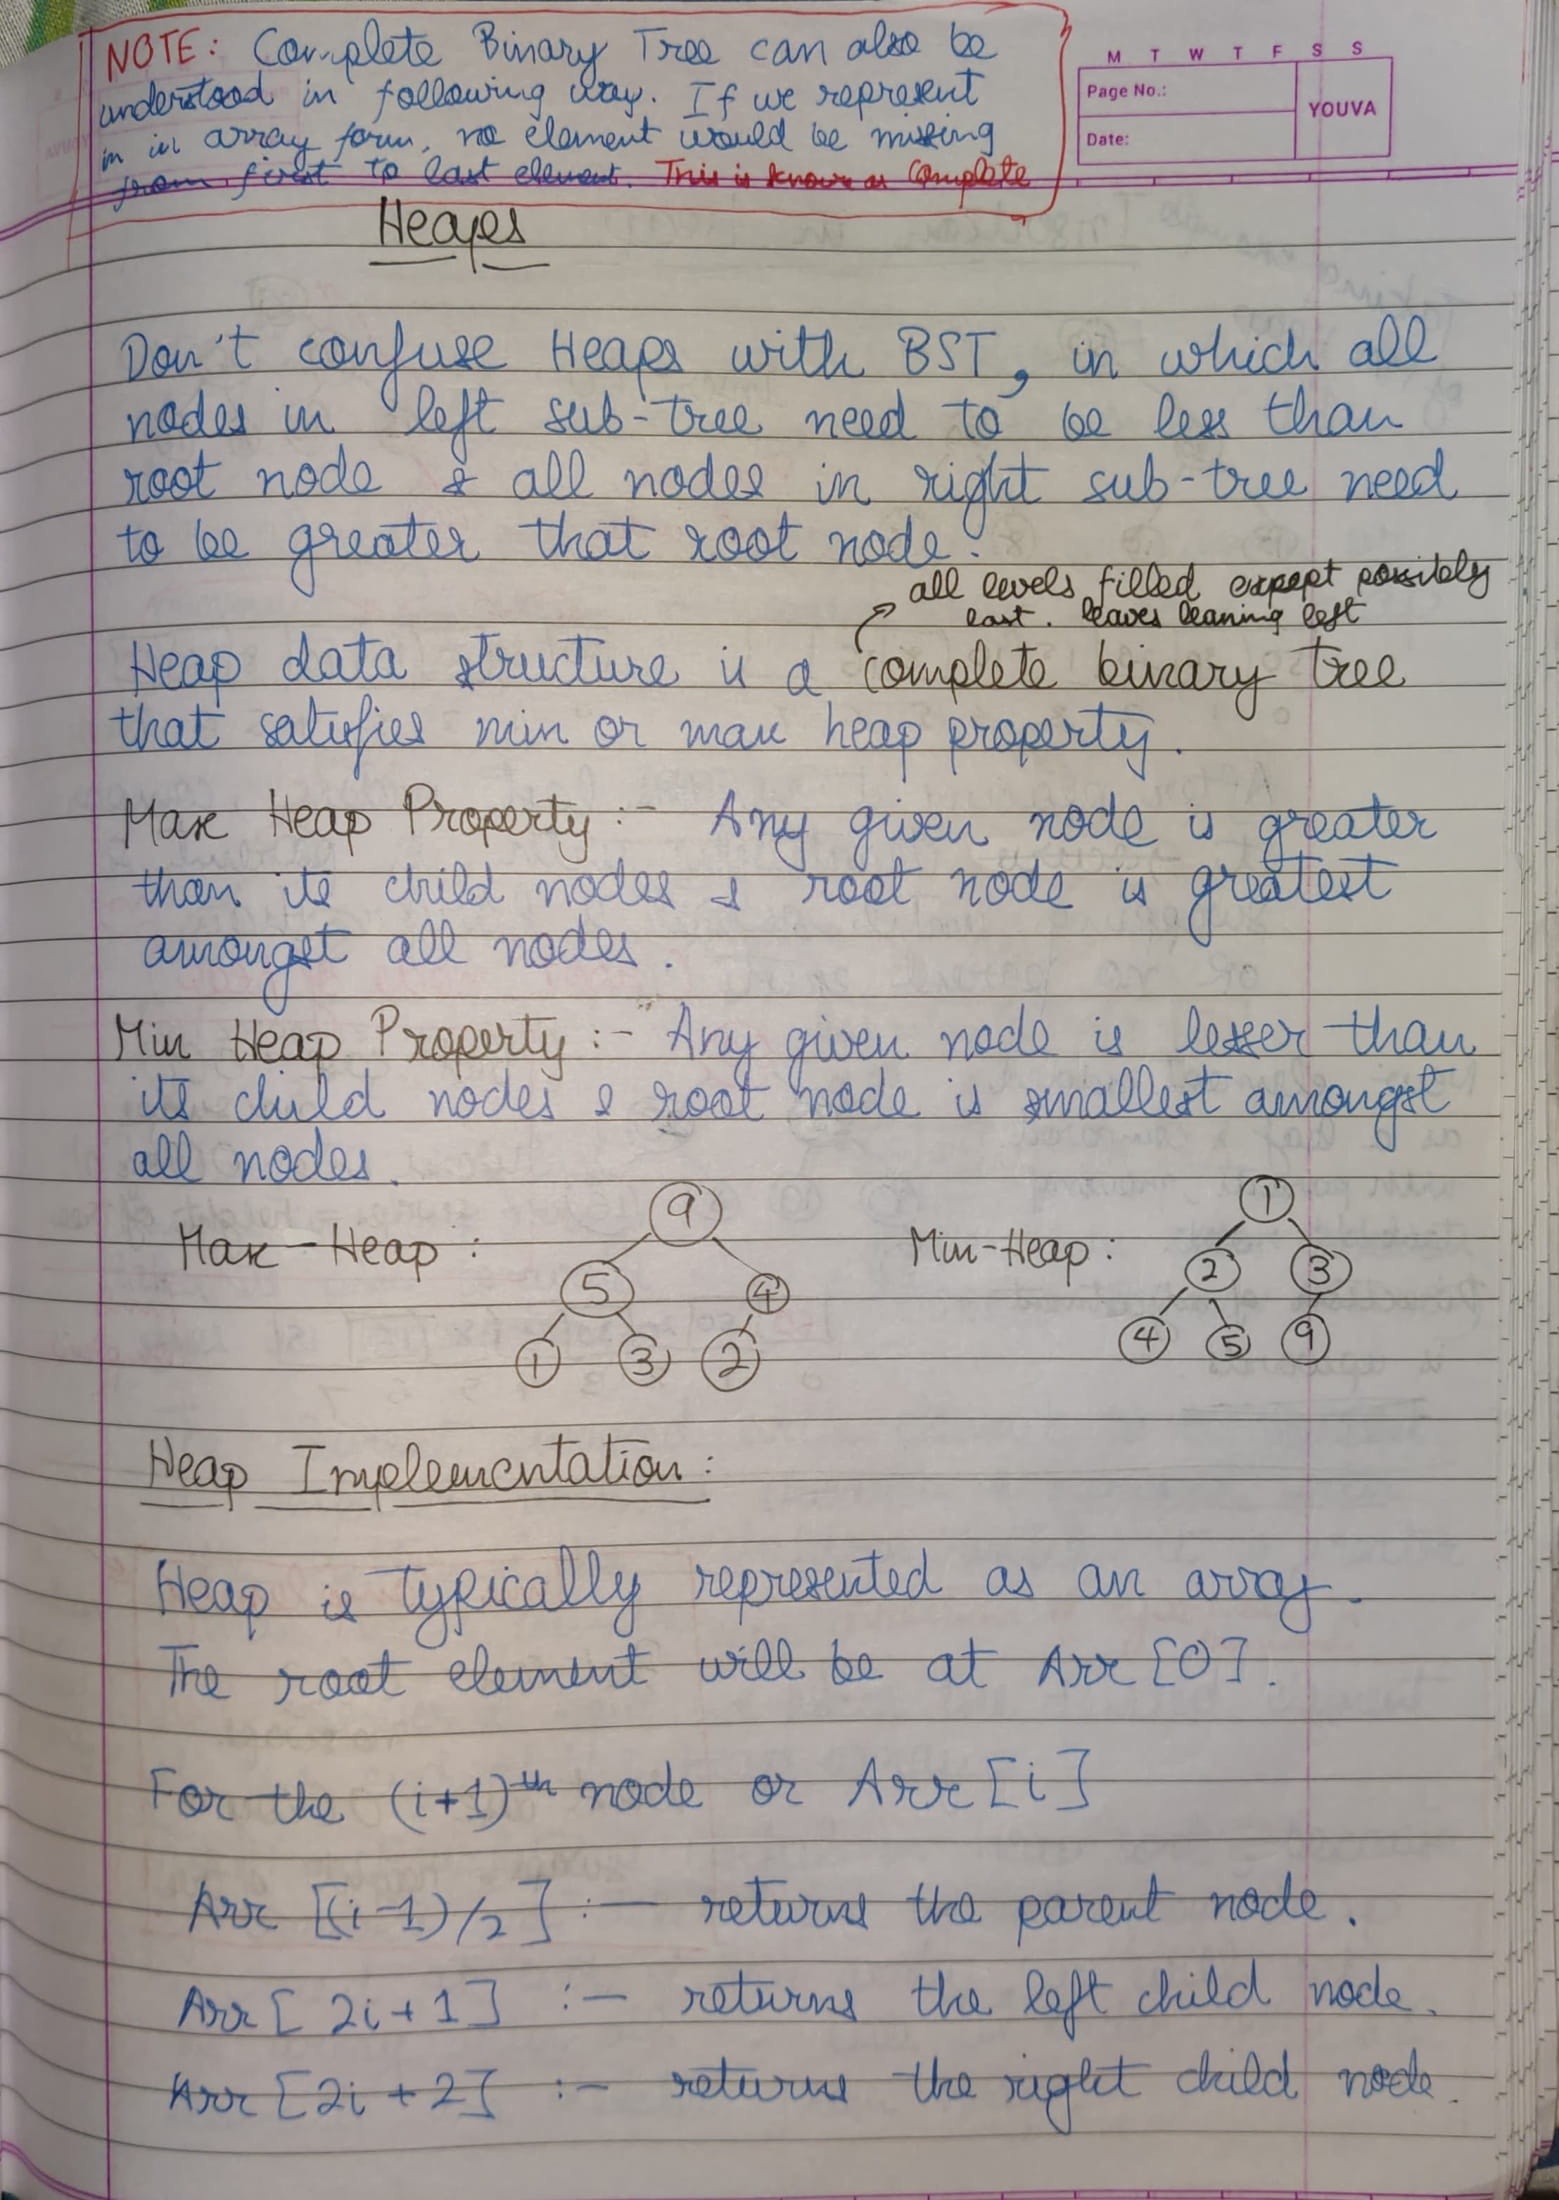 NOTE: Complete Binary Tree can also be
understood in following way. If we represent
in in array form, no element would be missing
from first to last element. This is known as Complete
M T W T F S S
Page No.:
Date:
YOUVA
Heaps
Don't confuse Heaps with BST, in which all
nodes in left sub-tree need to be less than
root node & all nodes in right sub-tree need
to be greater that root node.
all levels filled except possibly
last. leaves leaning left
Heap data structure is a complete binary tree
that satisfies min or max heap property.
Max Heap Property :- Any given node is greater
than its child nodes & root node is greatest
amongst all nodes.
Min Heap Property :- Any given node is lesser than
its child nodes & root node is smallest amongst
all nodes.
Max-Heap :
9
5 4
1 3 2
Min-Heap :
1
2 3
4 5 9
Heap Implementation :
Heap is typically represented as an array.
The root element will be at Arr [0].
For the (i+1)th node or Arr [i]
Arr [(i-1)/2] :- returns the parent node.
Arr [2i+1] :- returns the left child node.
Arr [2i+2] :- returns the right child node.